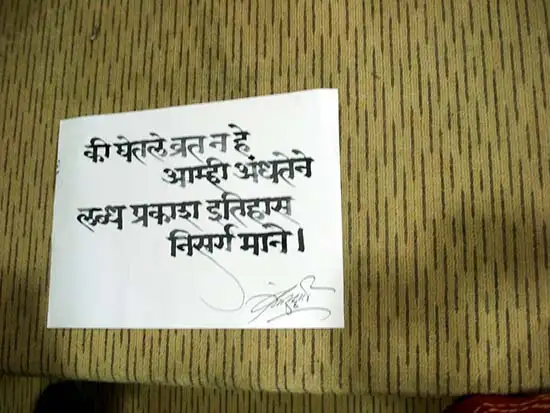 की घेतले व्रत न हे
आम्ही अंधतेने
लब्ध प्रकाश इतिहास
निसर्ग माने।